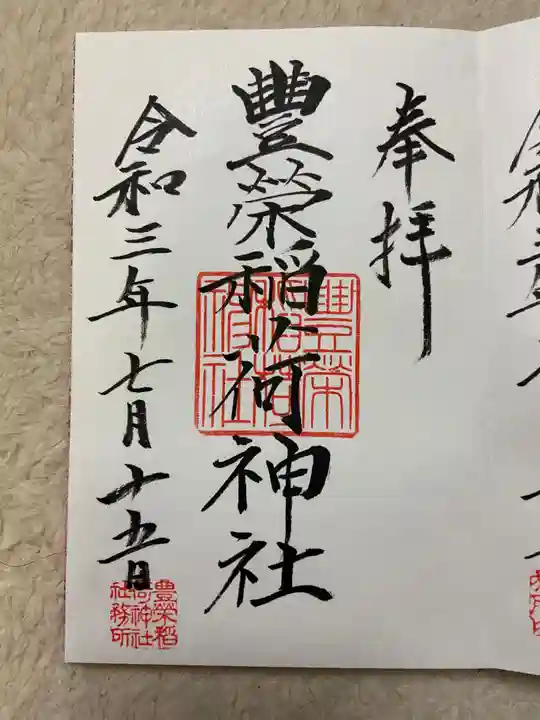 奉拝
豊榮稲荷神社
豊榮
稲荷
神社
令和三年七月十五日
豊榮稲
荷神社
社務所